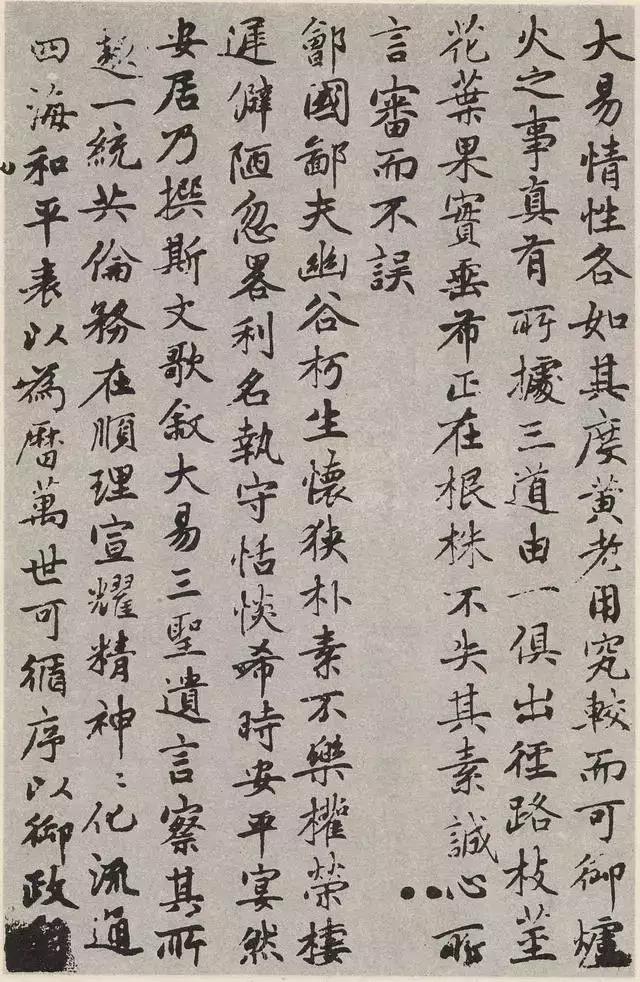 大易情性各如其度黄老用究較而可御爐
火之事真有所據三道由一俱出徑路枝莖
花葉果實垂布正在根株不失其素誠心所
言審而不誤
鄶國鄙夫幽谷朽生懷狹朴素不樂權榮棲
遲僻陋忽畧利名執守恬惔希時安平宴然
安居乃撰斯文歌敘大易三聖遺言察其所
趍一統共倫務在順理宣耀精神〻化流通
四海和平表以為曆萬世可循序以御政